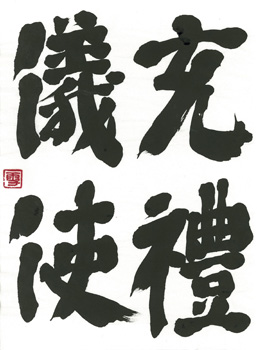 充禮
儀使